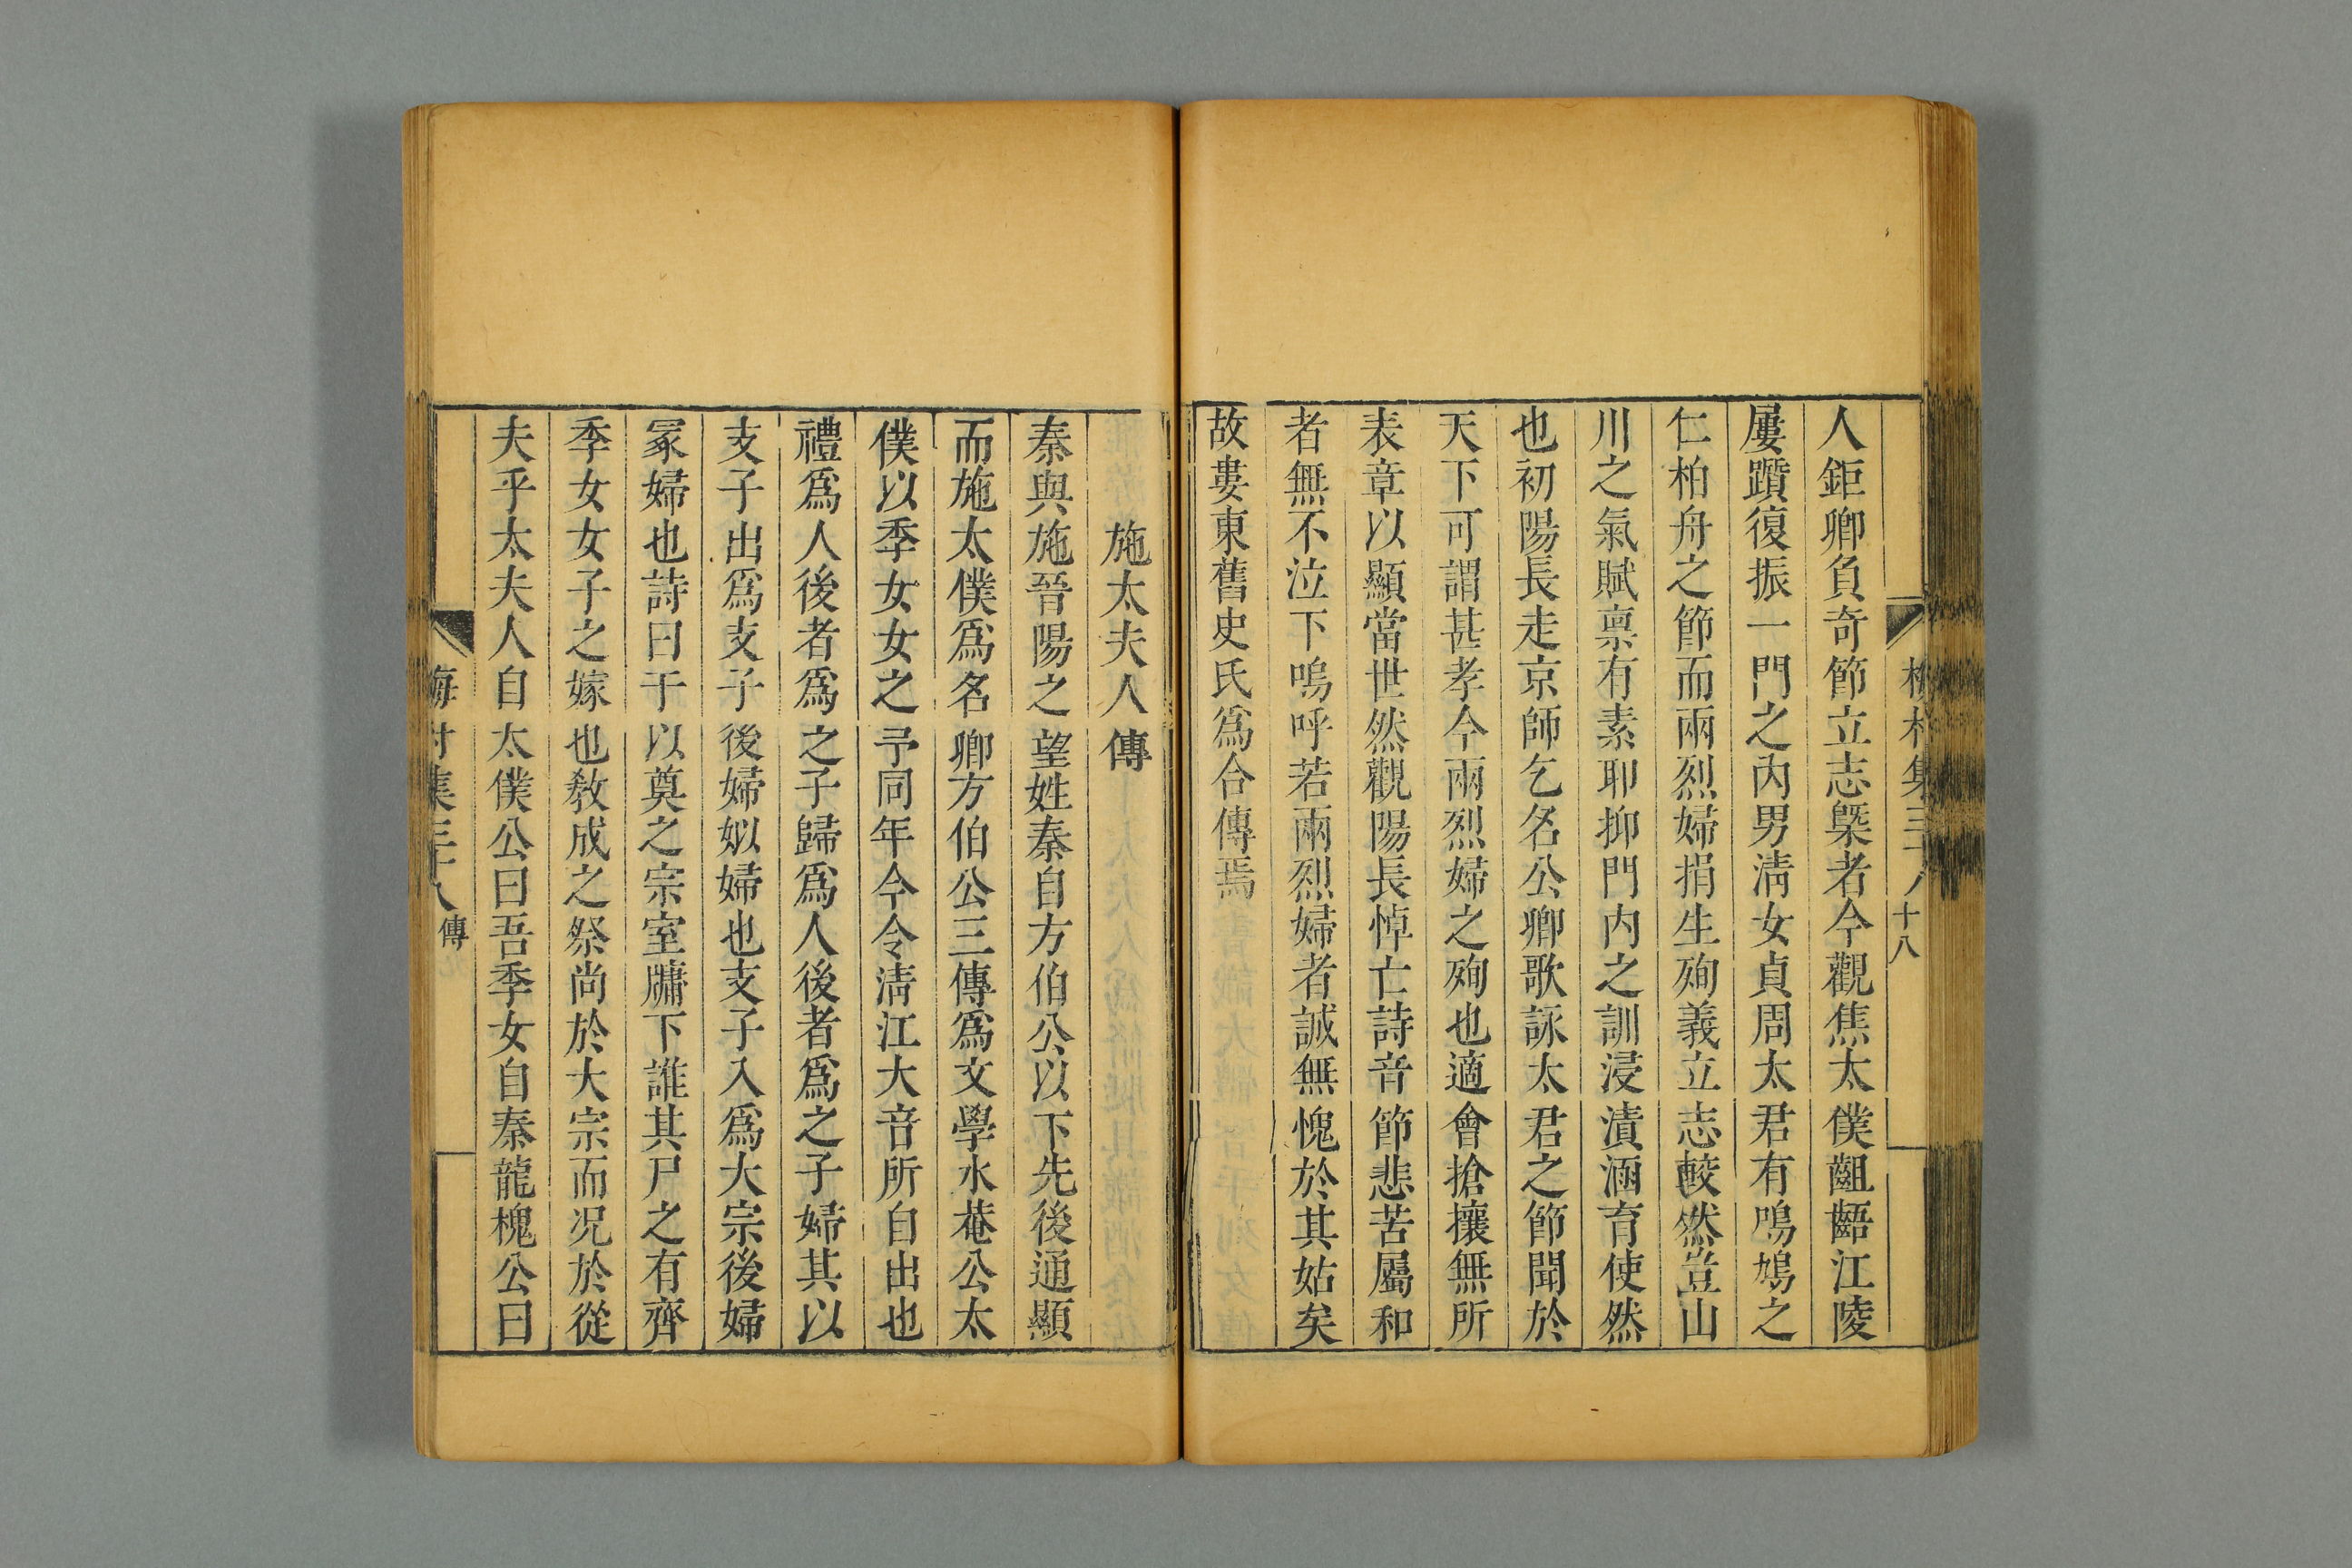 人鉅卿負奇節立志槩者今觀焦太僕齟齬江陵
屢躓復振一門之內男淸女貞周太君有鳴鳩之
仁柏舟之節而兩烈婦捐生殉義立志較然豈山
川之氣賦稟有素耶抑門內之訓浸漬涵育使然
也初陽長走京師乞名公卿歌詠太君之節聞於
天下可謂甚孝今兩烈婦之殉也適會搶攘無所
表章以顯當世然觀陽長悼亡詩音節悲苦屬和
者無不泣下嗚呼若兩烈婦者誠無愧於其姑矣
故婁東舊史氏爲合傳焉
十八
施太夫人傳
秦與施晉陽之望姓秦自方伯公以下先後通顯
而施太僕爲名卿方伯公三傳爲文學水菴公太
僕以季女女之予同年今令淸江大音所自出也
禮爲人後者爲之子歸爲人後者爲之子婦其以
支子出爲支子後婦姒婦也支子入爲大宗後婦
冢婦也詩曰于以奠之宗室牖下誰其尸之有齊
季女女子之嫁也敎成之祭尚於大宗而况於從
夫乎太夫人自太僕公曰吾季女自秦龍槐公曰
梅村集三十八 傳